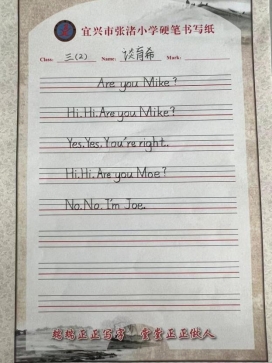 宜兴市张渚小学硬笔书写纸
Class: 三(2) Name: 谈育希 Mark:
Are you Mike?
Hi. Hi. Are you Mike?
Yes. Yes. You're right.
Hi. Hi. Are you Moe?
No. No. I'm Joe.
端端正正写字 堂堂正正做人